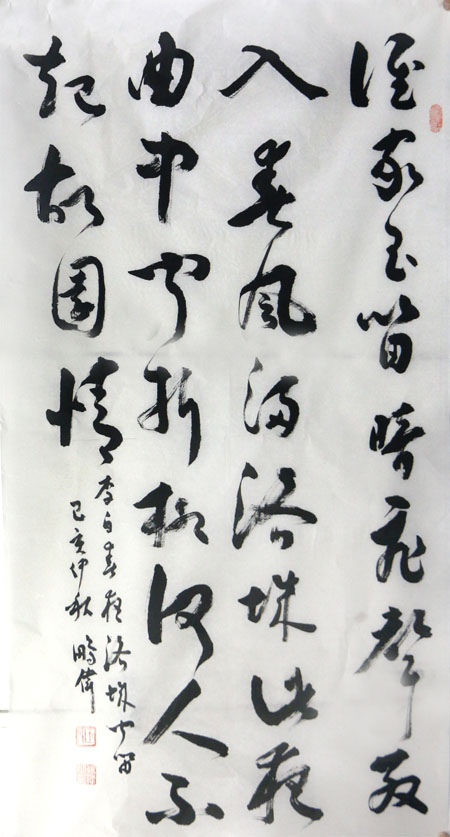 谁家玉笛暗飞声散
入春风满洛城此夜
曲中闻折柳何人不
起故园情
李白春夜洛城闻笛
己亥仲秋 鹏伟